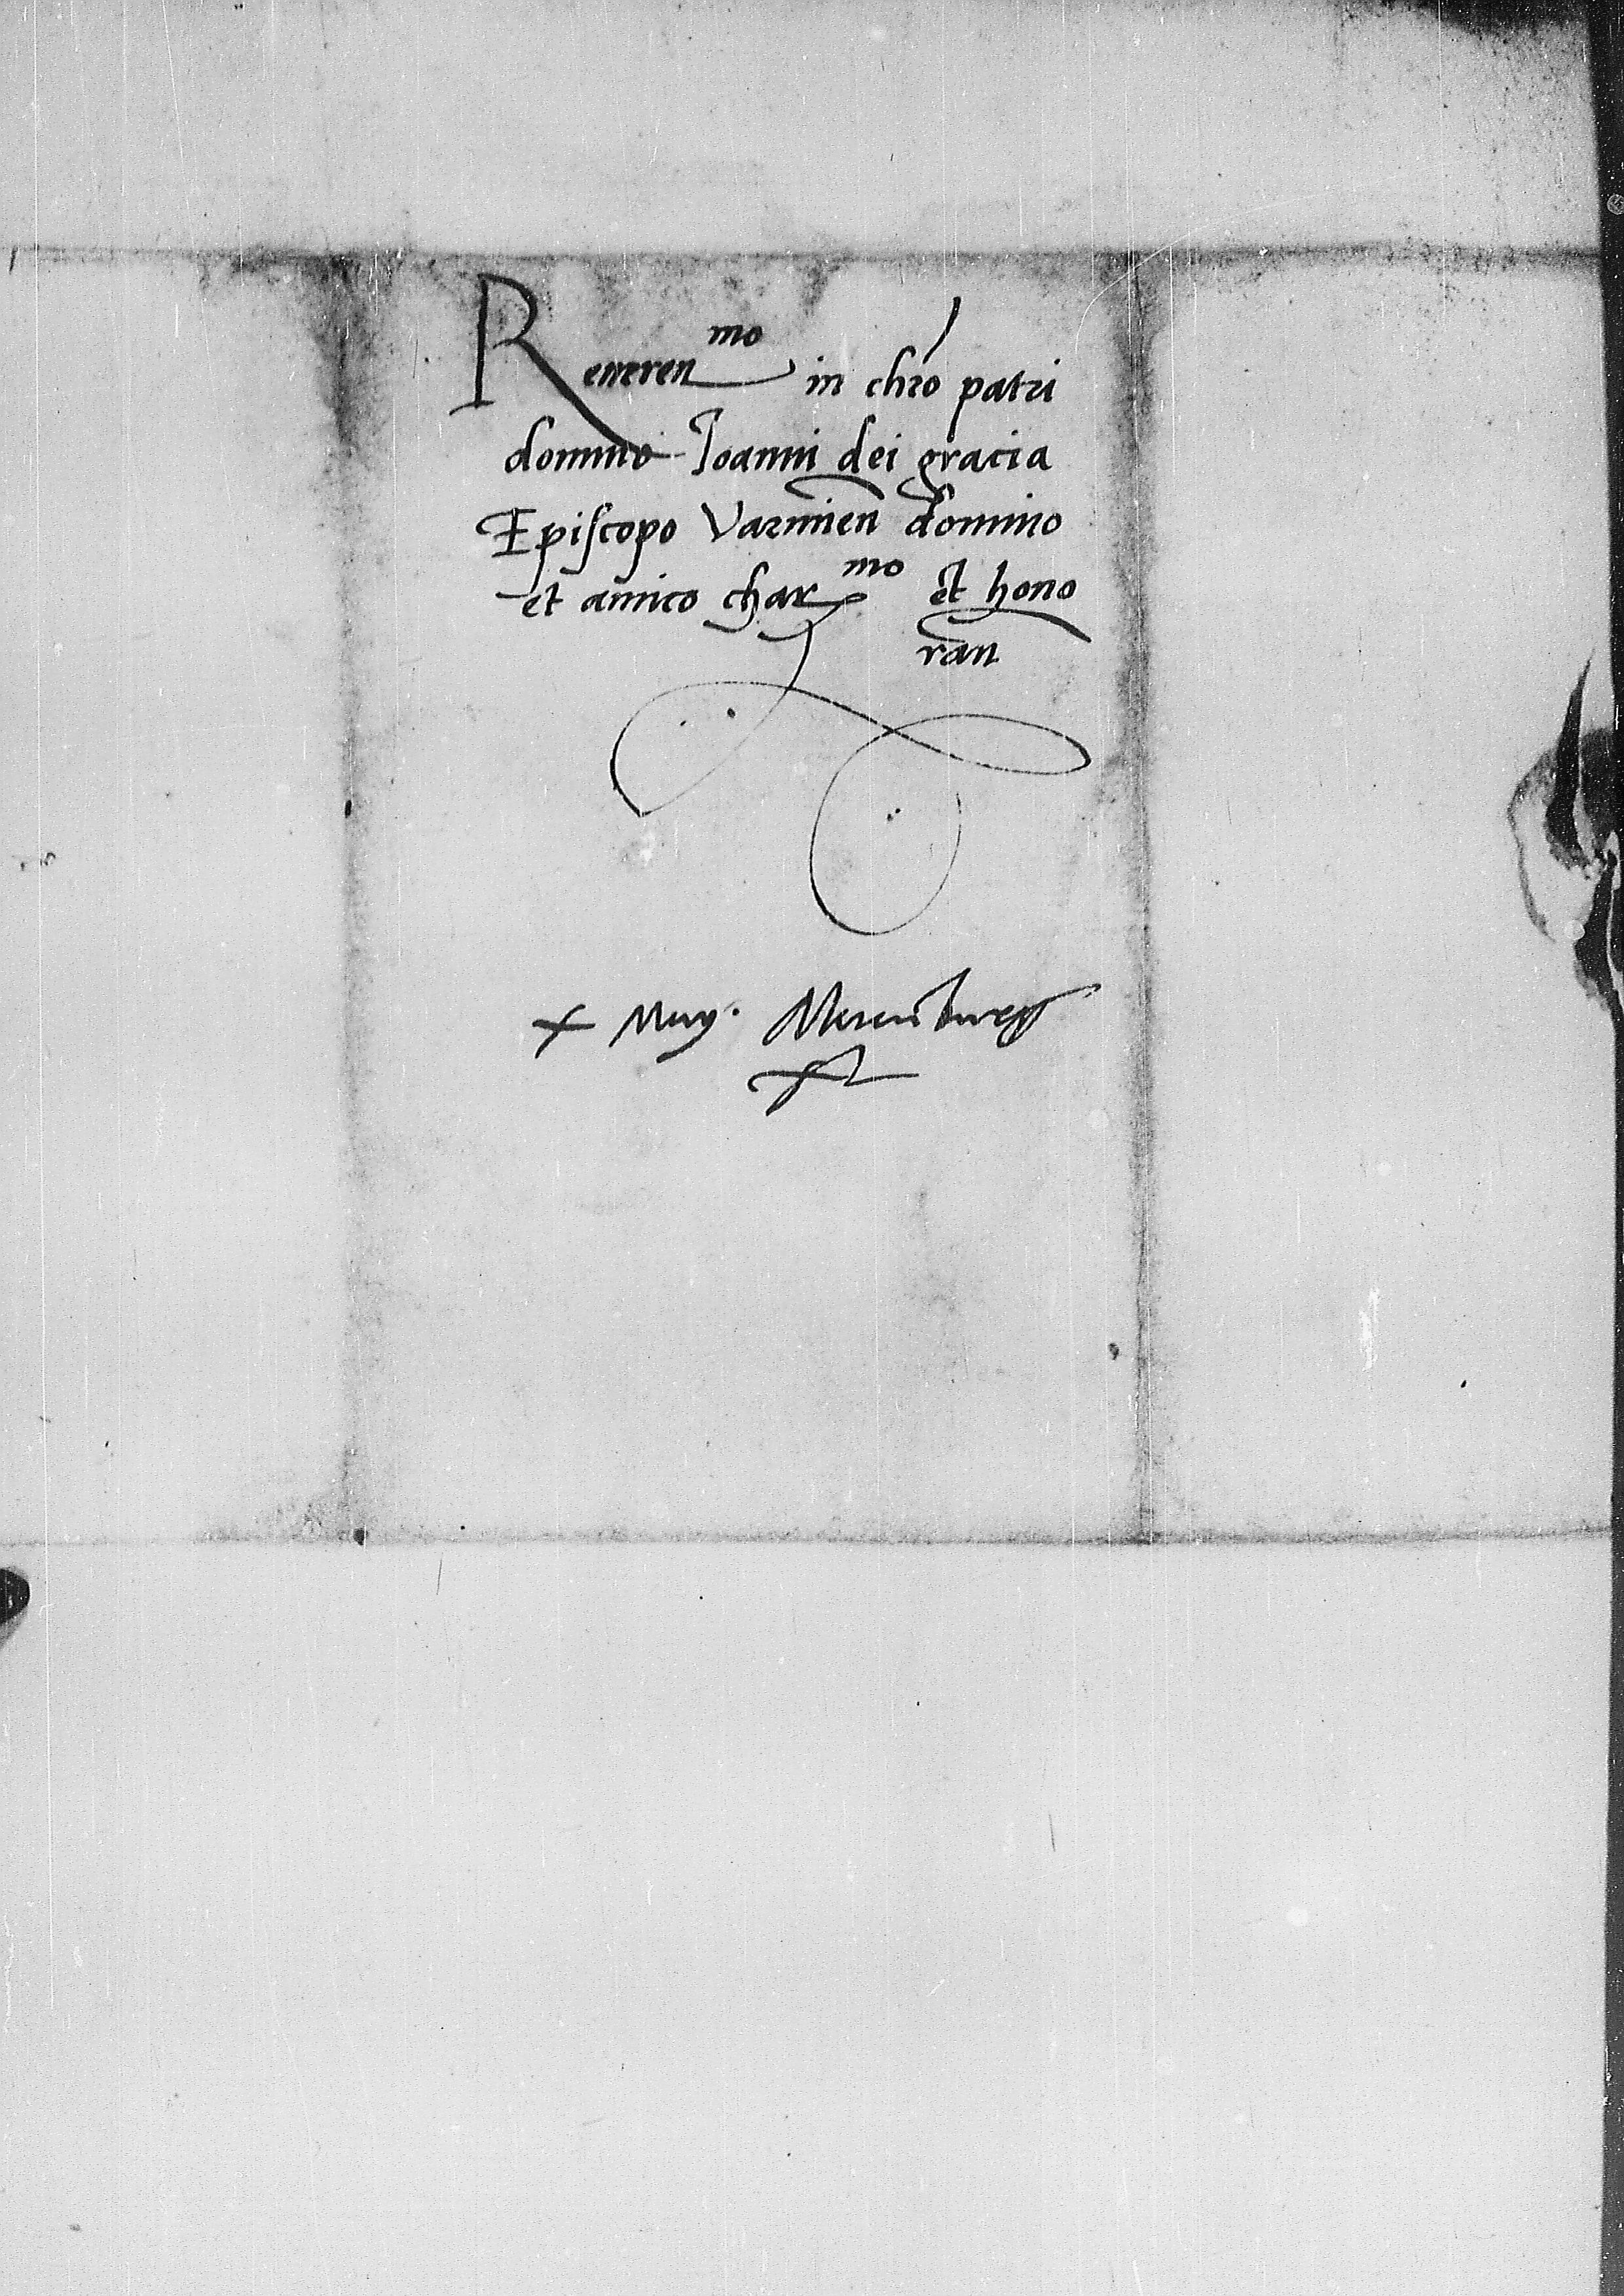 Reveren^mo in chro patri
domino Ioanni dei gracia
Episcopo Varmien domino
et amico char^mo et hono
ran